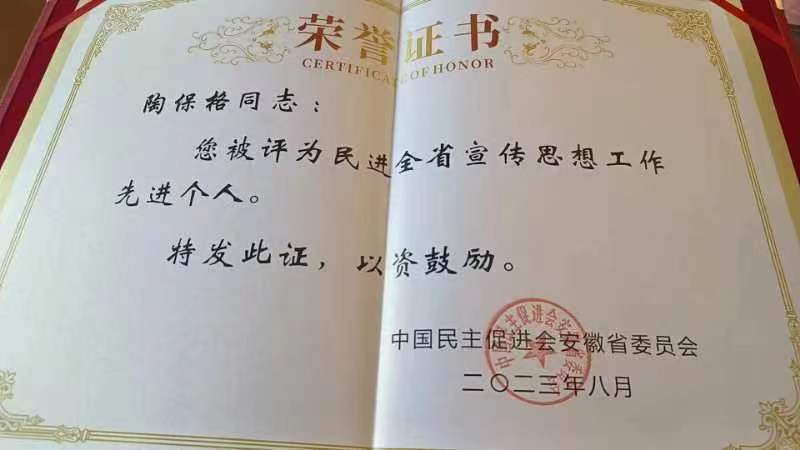 荣誉证书
CERTIFICATE OF HONOR
陶保格同志：
您被评为民进全省宣传思想工作
先进个人。
特发此证，以资鼓励。
中国民主促进会安徽省委员会
二〇二三年八月
中国民主促进会安徽省委员会